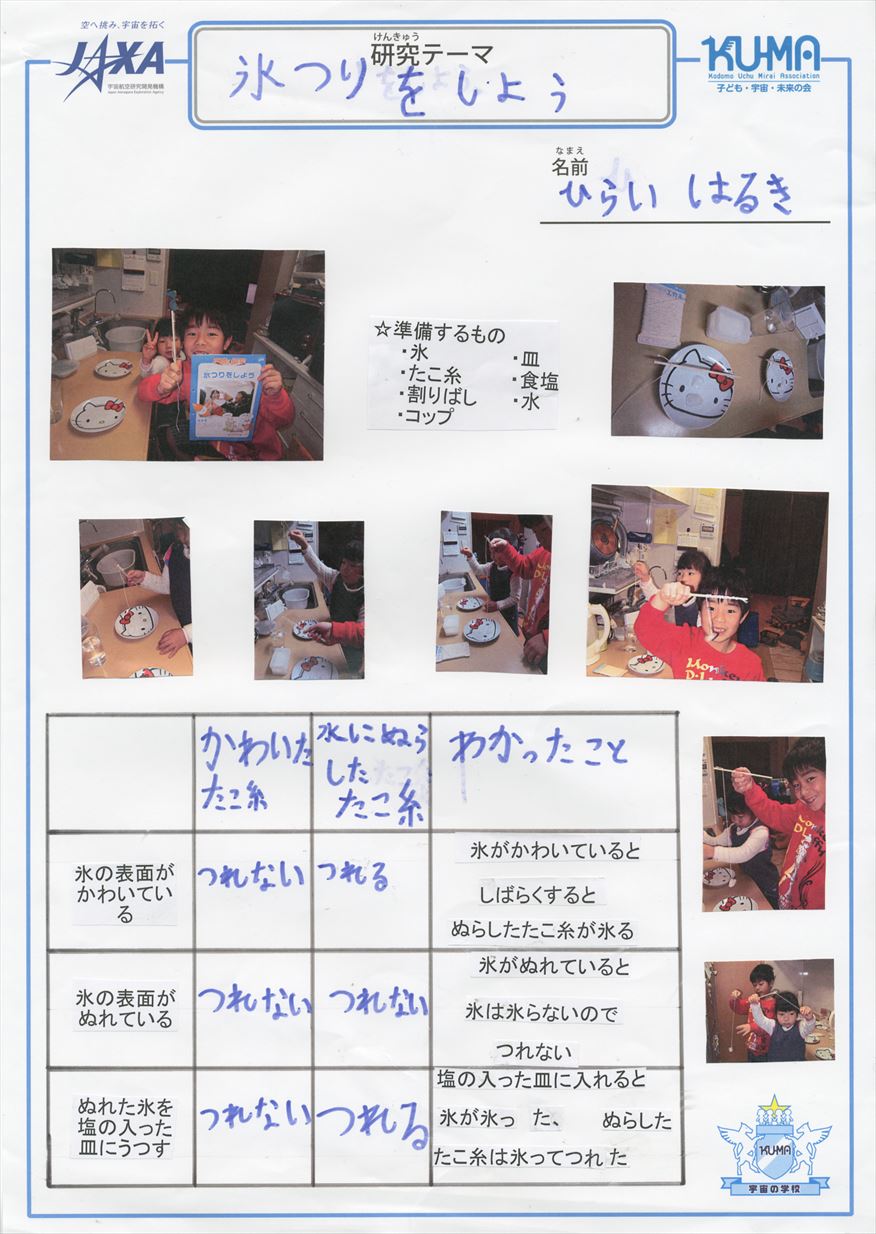 空へ挑み、宇宙を拓く
JAXA
宇宙航空研究開発機構
Japan Aerospace Exploration Agency
けんきゅう
研究テーマ
氷つりをしよう
KU-MA
Kodomo Uchu Mirai Association
子ども・宇宙・未来の会
なまえ
名前
ひらい はるき
氷つりをしよう
☆準備するもの
・氷
・たこ糸
・割りばし
・コップ
・皿
・食塩
・水
かわいた
たこ糸
水にぬら
した
たこ糸
わかったこと
氷の表面が
かわいてい
る
つれない
つれる
氷がかわいていると
しばらくすると
ぬらしたたこ糸が氷る
氷の表面が
ぬれている
つれない
つれない
氷がぬれていると
氷は氷らないので
つれない
ぬれた氷を
塩の入った
皿にうつす
つれない
つれる
塩の入った皿に入れると
氷が氷っ た、 ぬらした
たこ糸は氷ってつれた
KUMA
宇宙の学校